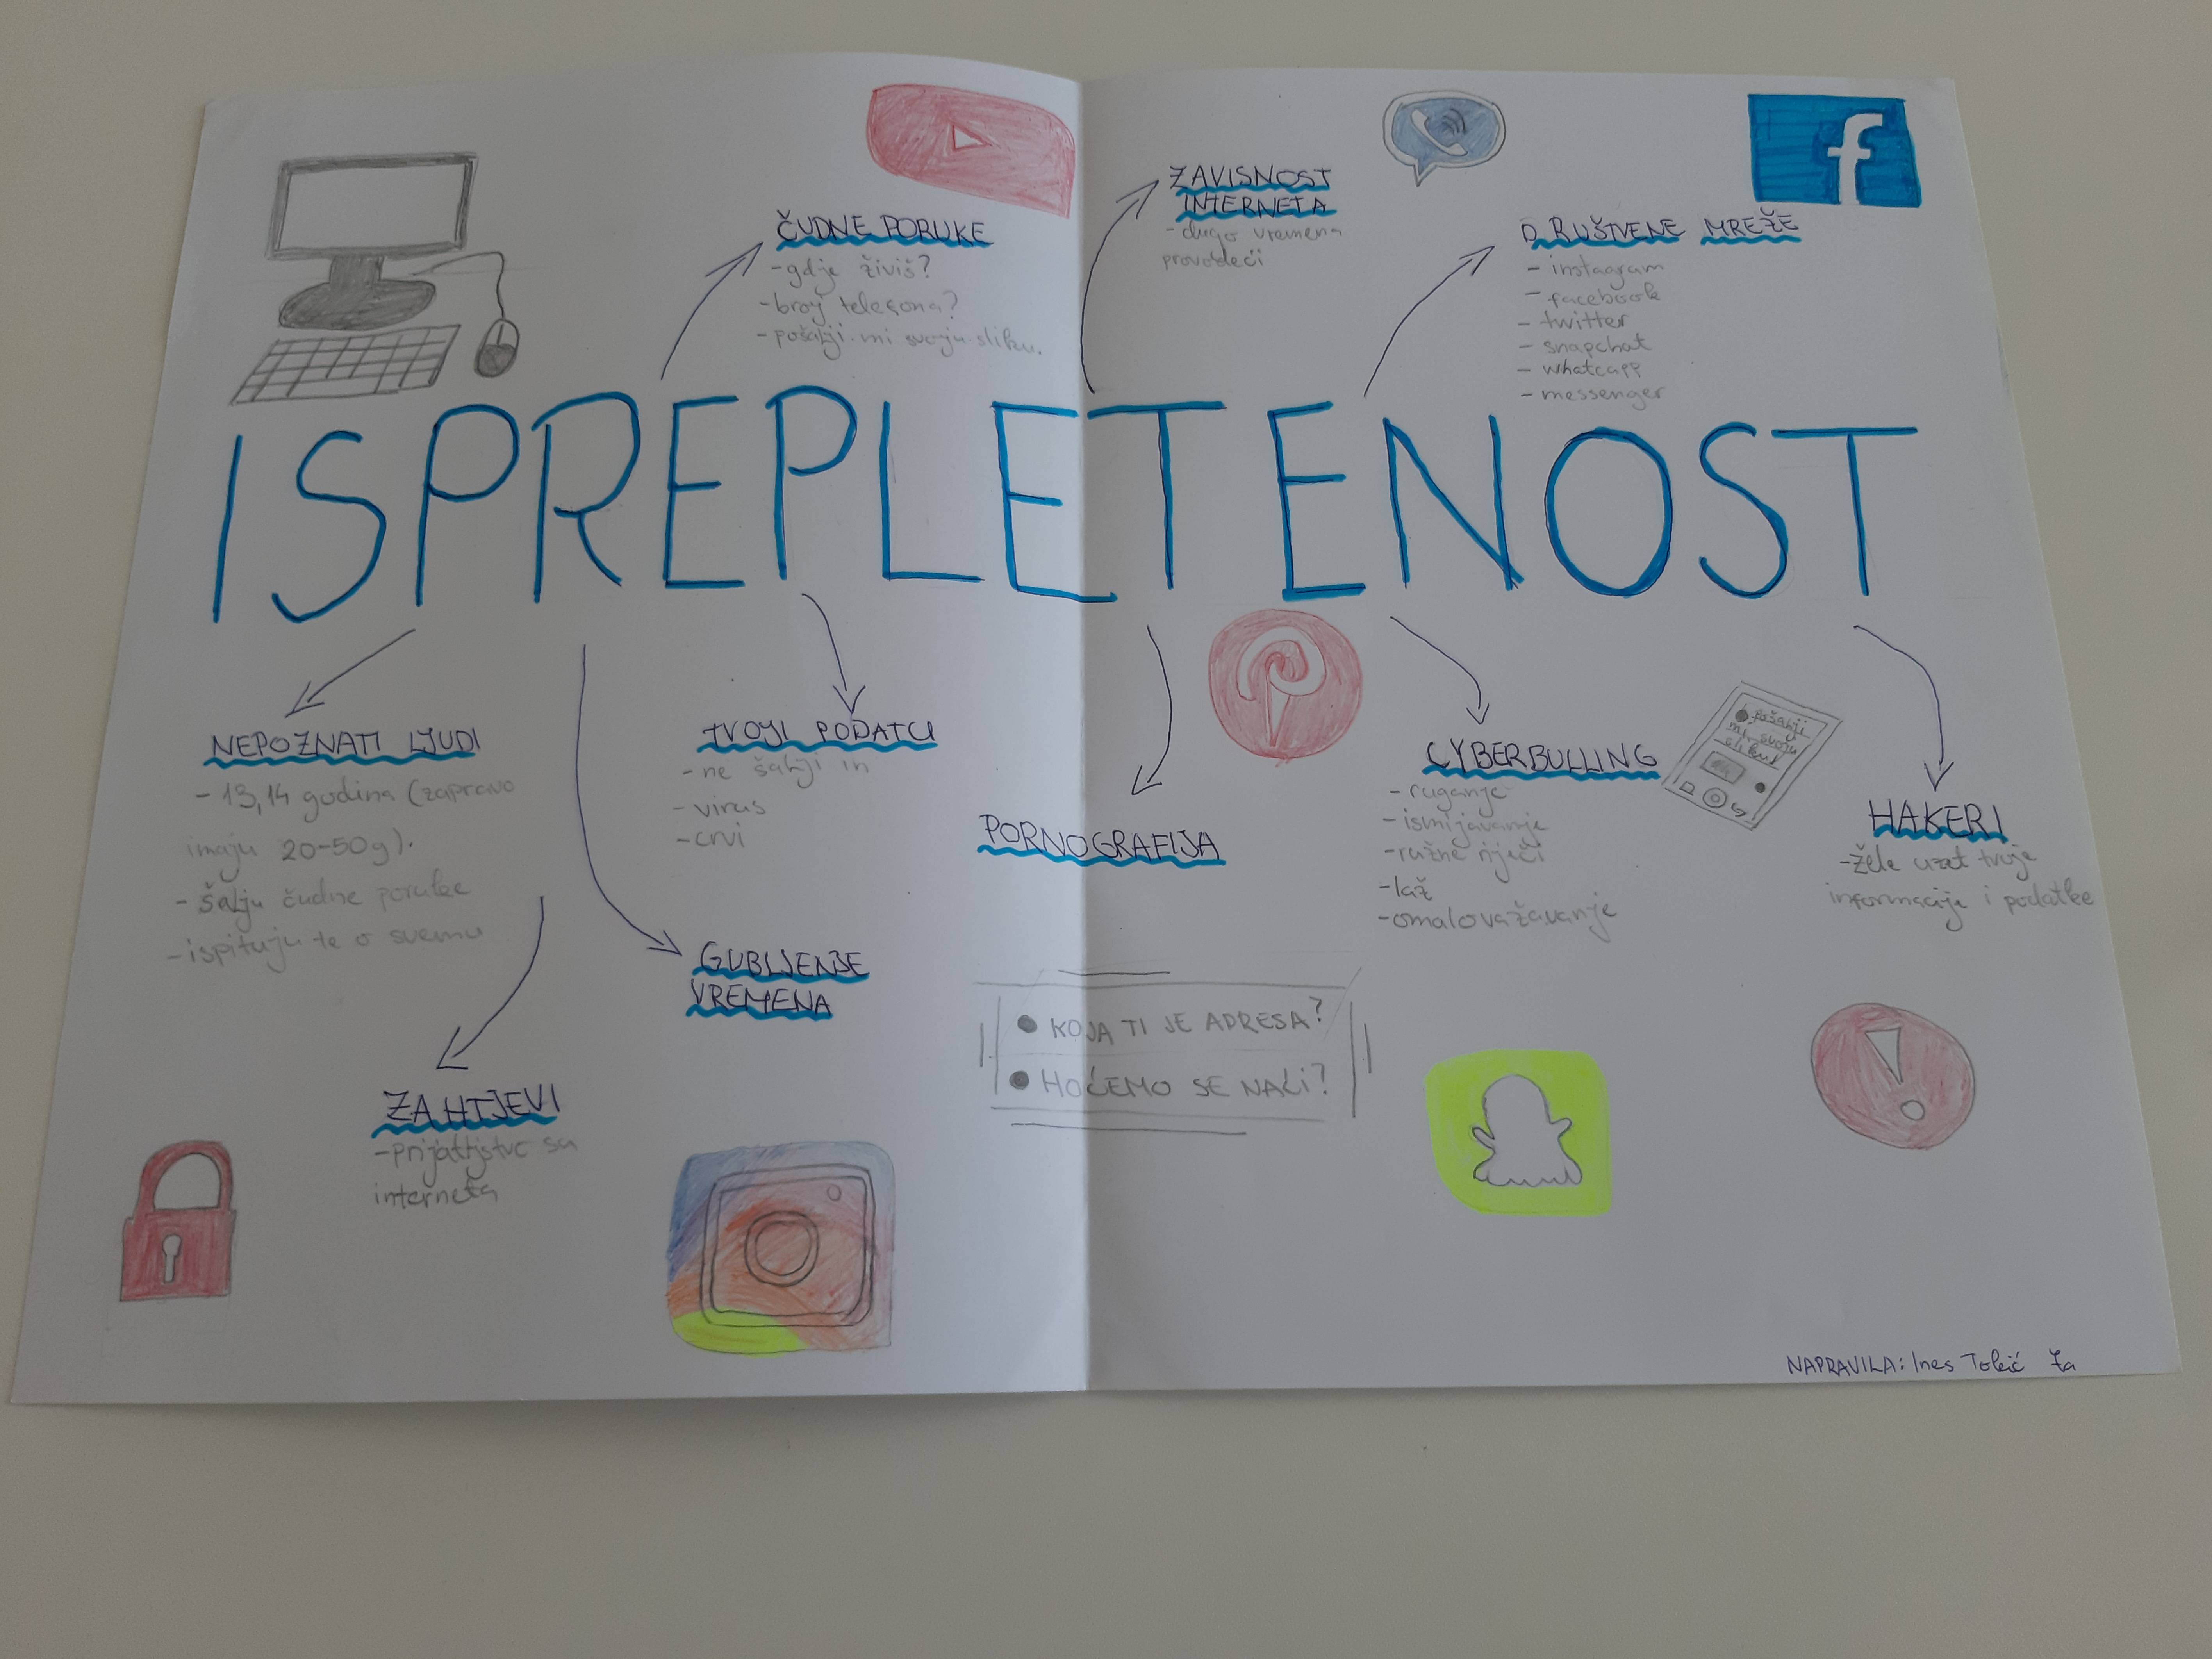 ČUDNE PORUKE
-gdje živiš?
-broj telefona?
-pošalji mi svoju sliku.
ZAVISNOST
INTERNETA
-dugo vremena
provodeći
DRUŠTVENE MREŽE
- instagram
- facebook
- twitter
- snapchat
- whatcapp
- messenger
f
ISPREPLETENOST
NEPOZNATI LJUDI
- 13,14 godina (zapravo
imaju 20-50g).
- šalju čudne poruke
-ispituju te o svemu
ZAHTJEVI
-prijateljstvo sa
interneta
TVOJI PODATCI
-ne šalji ih
-virus
-crvi
GUBLJENJE
VREMENA
PORNOGRAFIJA
CYBERBULLING
-ruganje
-ismijavanje
-ružne riječi
-laž
-omalovažavanje
pošalji
mi svoju
sliku
HAKERI
-žele uzet tvoje
informacije i podatke
KOJA TI JE ADRESA?
HOĆEMO SE NAĆI?
NAPRAVILA: Ines Tokić 7a